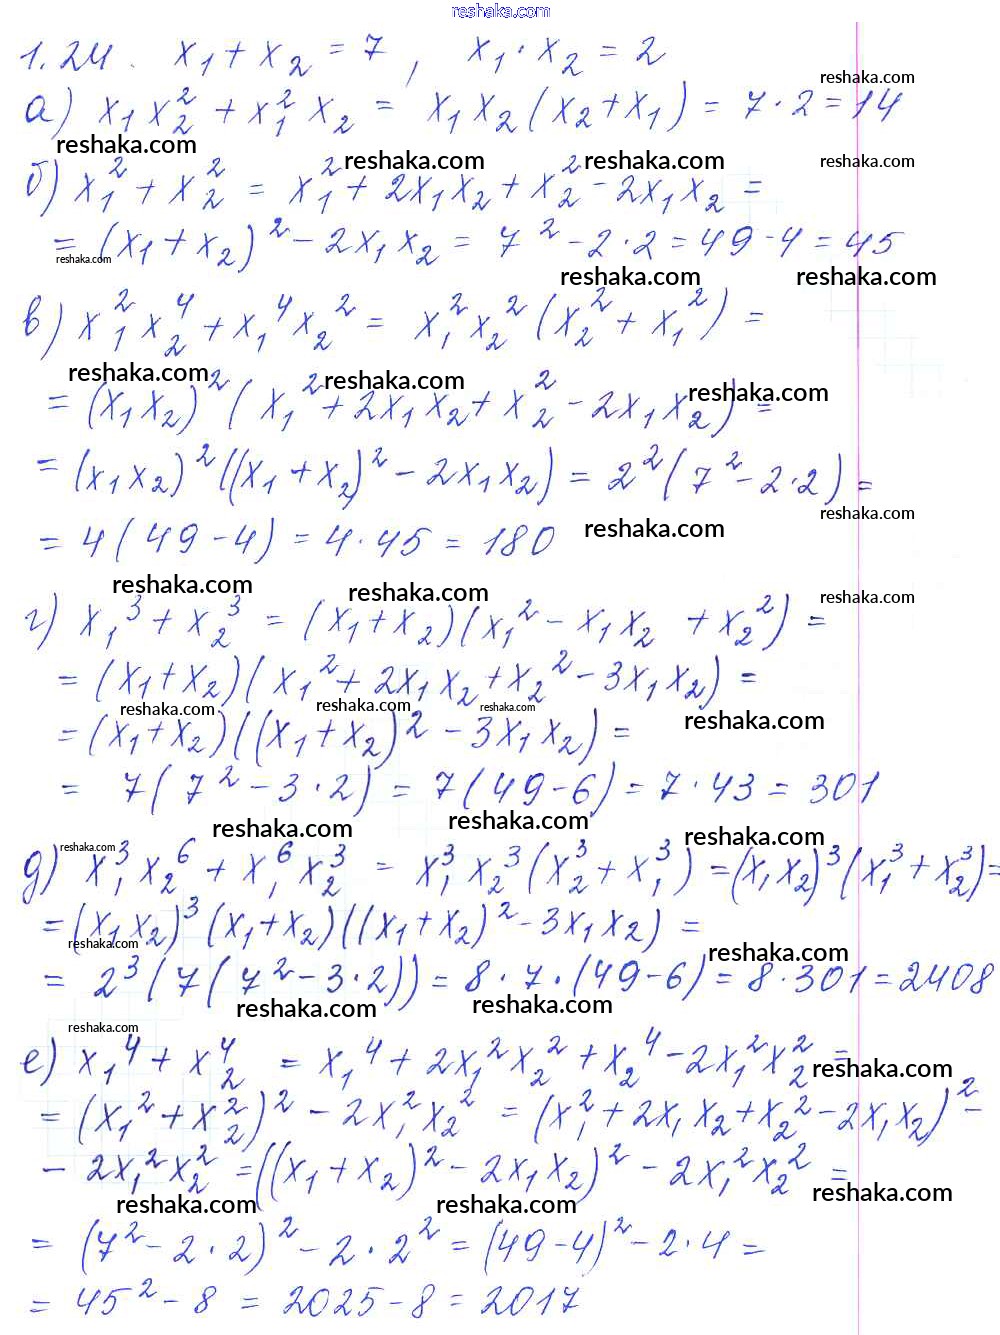 reshaka.com
1.24. x₁ + x₂ = 7, x₁ · x₂ = 2
reshaka.com
а) x₁x₂² + x₁²x₂ = x₁x₂(x₂ + x₁) = 7 · 2 = 14
reshaka.com reshaka.com reshaka.com reshaka.com
б) x₁² + x₂² = x₁² + 2x₁x₂ + x₂² - 2x₁x₂ =
= (x₁ + x₂)² - 2x₁x₂ = 7² - 2·2 = 49 - 4 = 45
reshaka.com reshaka.com reshaka.com
в) x₁²x₂⁴ + x₁⁴x₂² = x₁²x₂²(x₂² + x₁²) =
reshaka.com reshaka.com reshaka.com
= (x₁x₂)²(x₁² + 2x₁x₂ + x₂² - 2x₁x₂) =
= (x₁x₂)²((x₁ + x₂)² - 2x₁x₂) = 2²(7² - 2·2) =
reshaka.com reshaka.com
= 4(49 - 4) = 4·45 = 180
reshaka.com reshaka.com reshaka.com
г) x₁³ + x₂³ = (x₁ + x₂)(x₁² - x₁x₂ + x₂²) =
= (x₁ + x₂)(x₁² + 2x₁x₂ + x₂² - 3x₁x₂) =
reshaka.com reshaka.com reshaka.com reshaka.com
= (x₁ + x₂)((x₁ + x₂)² - 3x₁x₂) =
= 7(7² - 3·2) = 7(49 - 6) = 7·43 = 301
reshaka.com reshaka.com reshaka.com reshaka.com
д) x₁³x₂⁶ + x₁⁶x₂³ = x₁³x₂³(x₂³ + x₁³) = (x₁x₂)³(x₁³ + x₂³) =
= (x₁x₂)³(x₁ + x₂)((x₁ + x₂)² - 3x₁x₂) =
reshaka.com reshaka.com
= 2³(7(7² - 3·2)) = 8·7·(49 - 6) = 8·301 = 2408
reshaka.com reshaka.com reshaka.com
е) x₁⁴ + x₂⁴ = x₁⁴ + 2x₁²x₂² + x₂⁴ - 2x₁²x₂² =
reshaka.com
= (x₁² + x₂²)² - 2x₁²x₂² = (x₁² + 2x₁x₂ + x₂² - 2x₁x₂)² -
- 2x₁²x₂² = ((x₁ + x₂)² - 2x₁x₂)² - 2x₁²x₂² =
reshaka.com reshaka.com reshaka.com
= (7² - 2·2)² - 2·2² = (49 - 4)² - 2·4 =
= 45² - 8 = 2025 - 8 = 2017